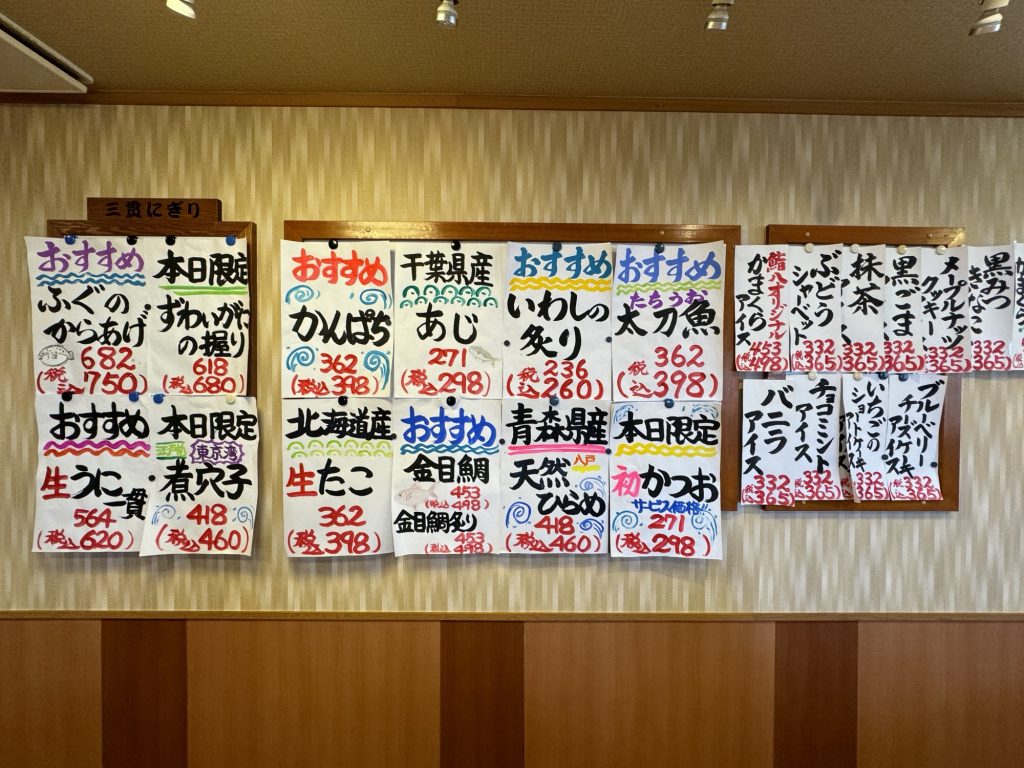 三貫にぎり
おすすめ
ふぐの
からあげ
682
(税込750)
本日限定
ずわいがに
の握り
618
(税込680)
おすすめ
かんぱち
362
(税込398)
千葉県産
あじ
271
(税込298)
おすすめ
いわしの
炙り
236
(税込260)
おすすめ
たちうお
太刀魚
362
(税込398)
おすすめ
生うに一貫
564
(税込620)
本日限定
東京湾
煮穴子
418
(税込460)
北海道産
生たこ
362
(税込398)
おすすめ
金目鯛
453
(税込498)
金目鯛炙り
453
(税込498)
青森県産
八戸
天然
ひらめ
418
(税込460)
本日限定
初かつお
サービス価格!!
271
(税込298)
鮨八オリジナル
かまくら
アイス
453
(税込498)
ぶどう
シャーベット
332
(税込365)
抹茶
332
(税込365)
黒ごま
332
(税込365)
メープルナッツ
クッキー
332
(税込365)
黒みつ
きなこ
332
(税込365)
バニラ
アイス
332
(税込365)
チョコミント
アイス
332
(税込365)
いちごの
ショートケーキ
332
(税込365)
ブルーベリー
チーズケーキ
アイス
332
(税込365)